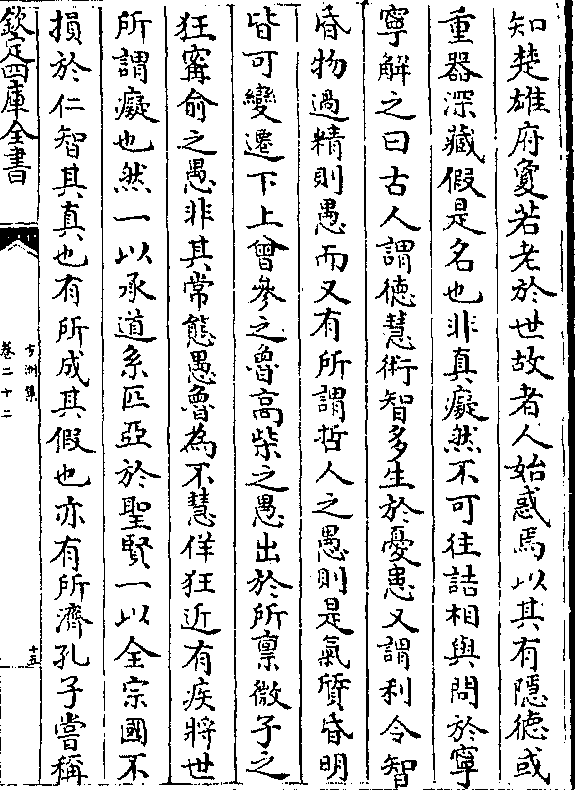 知楚雄府夐若老於世故者人始惑焉以其有隱德或
重器深藏假是名也非真癡然不可往詰相與問於寧
寧解之曰古人謂德慧術智多生於憂患又謂利令智
昏物過精則愚而又有所謂哲人之愚則是氣質昏明
皆可變遷下上曾參之魯高柴之愚出於所禀微子之
狂甯俞之愚非其常態愚魯為不慧佯狂近有疾將世
所謂癡也然一以承道系匹亞於聖賢一以全宗國不
損於仁智其真也有所成其假也亦有所濟孔子嘗稱
欽定四庫全書
方洲集
卷二十二
十五